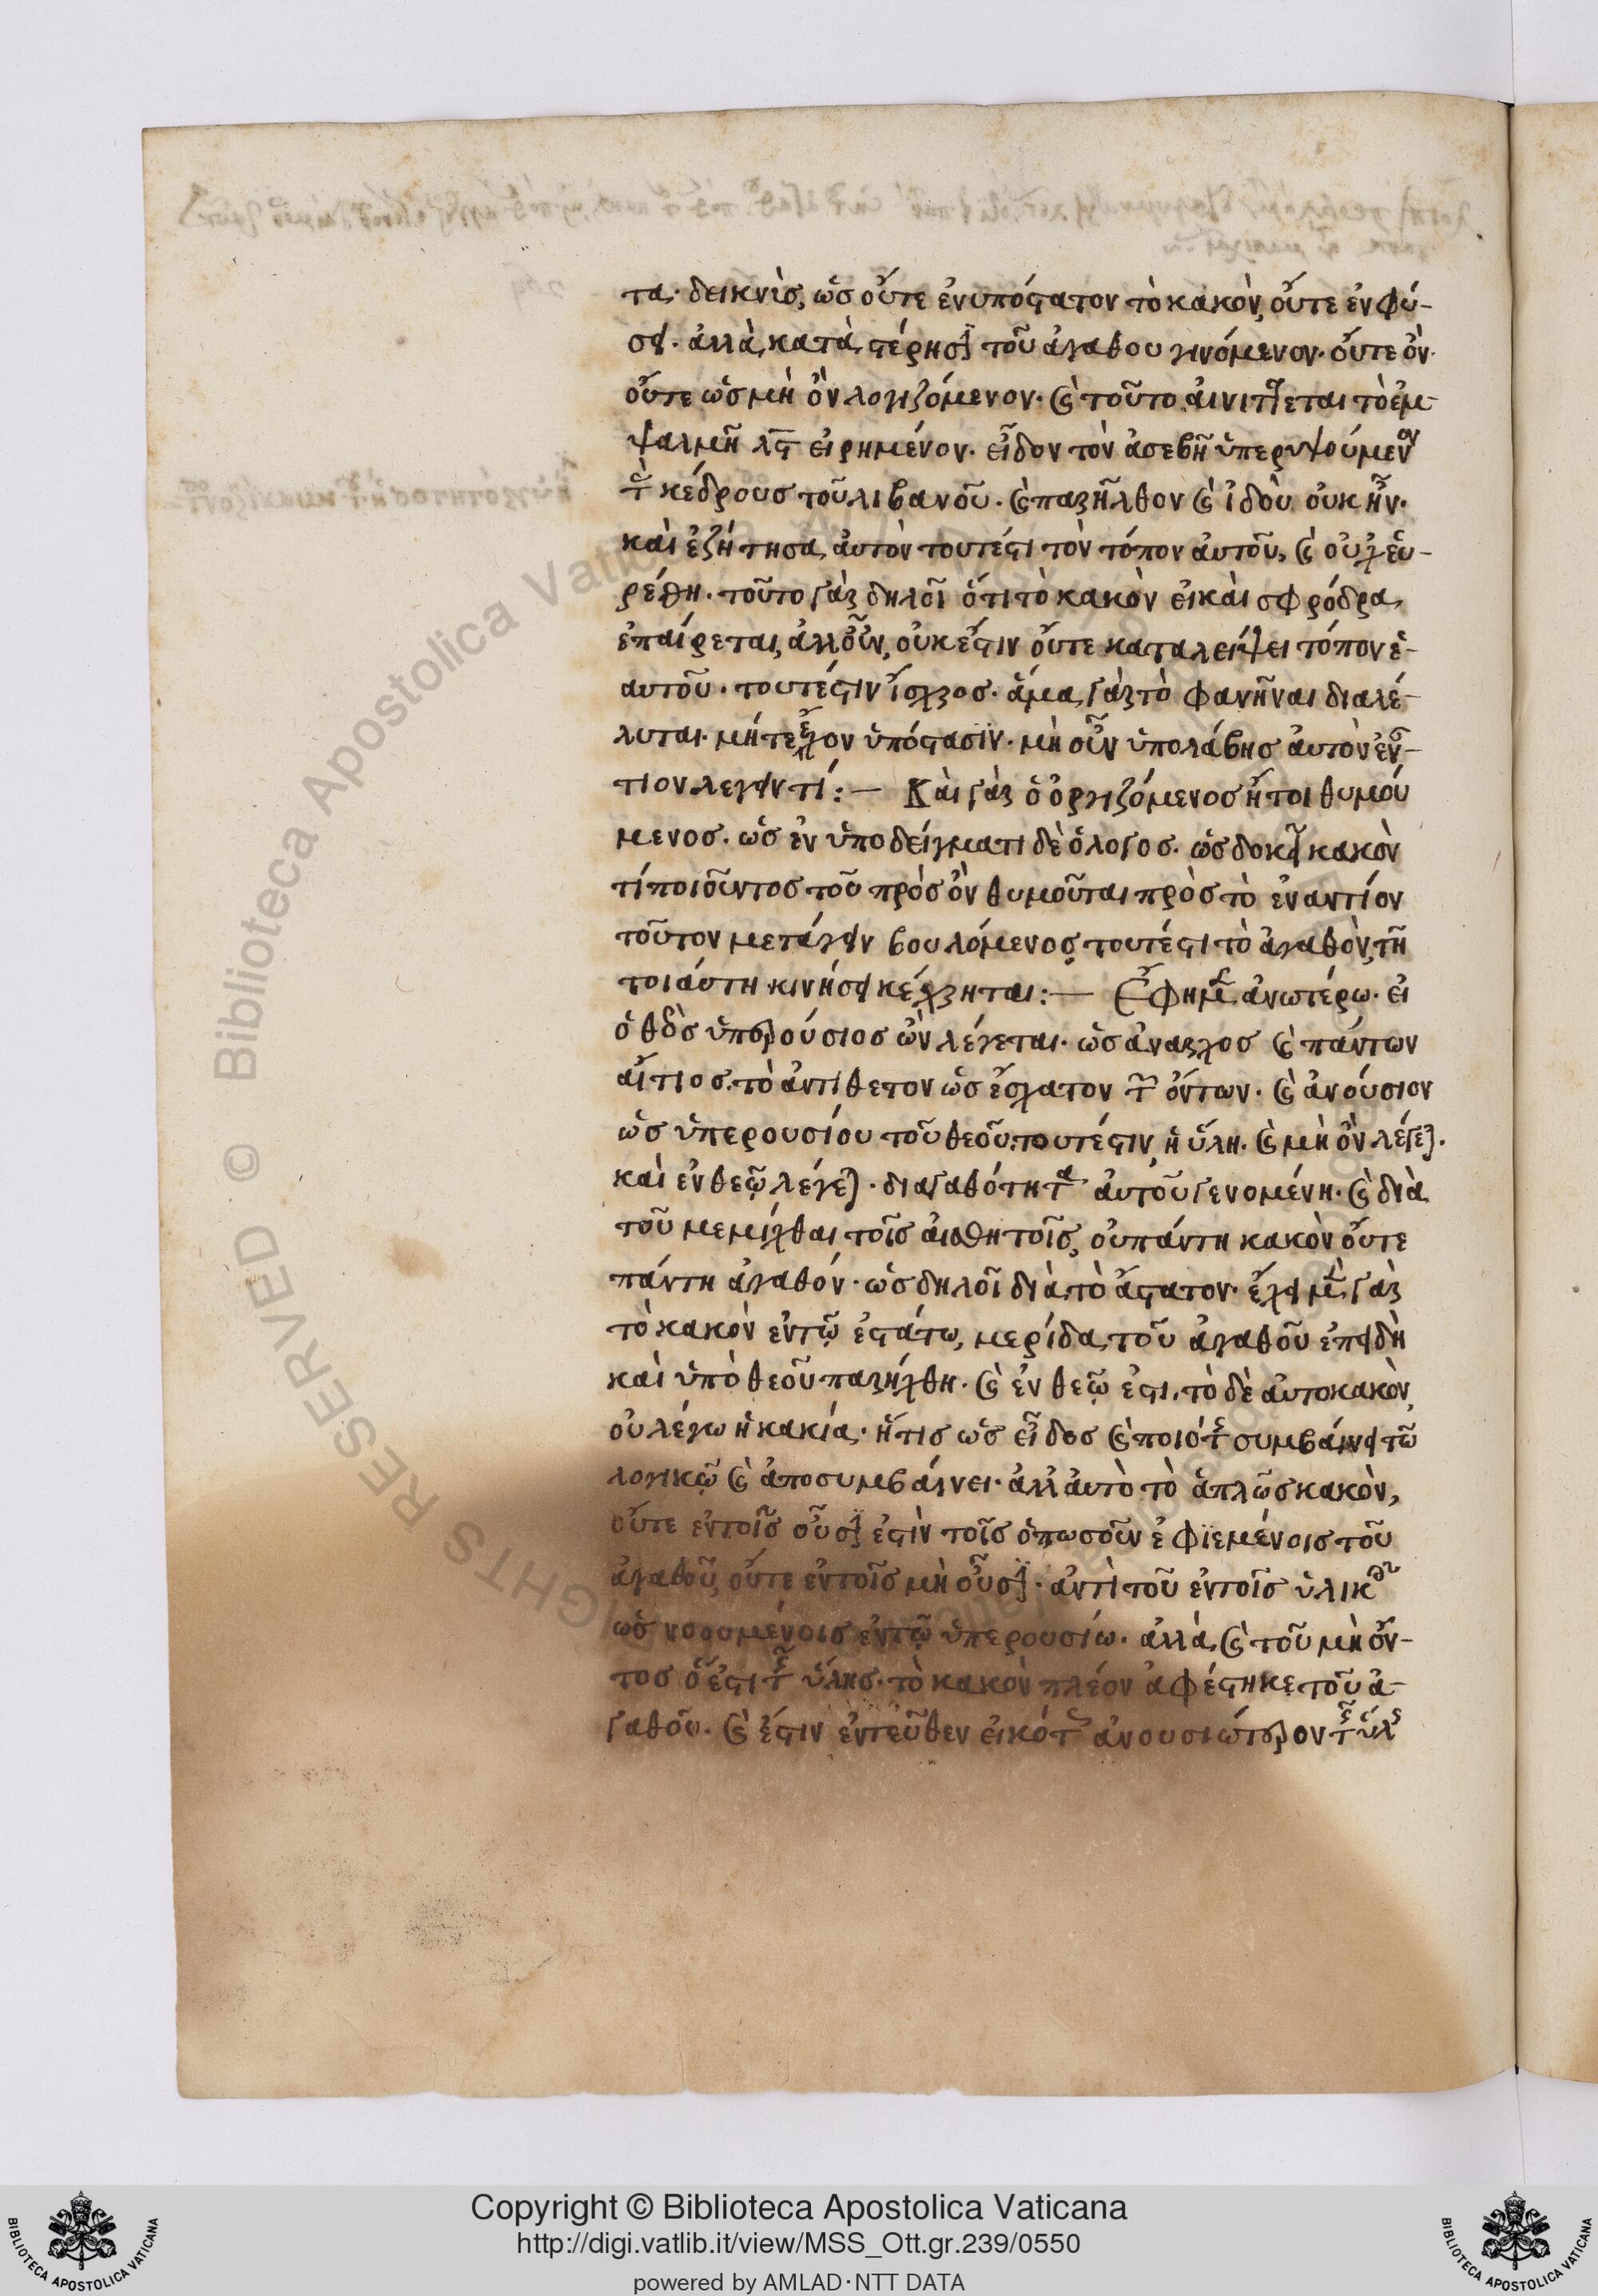 τα· δεικνὺς, ὡς οὔτε ἐνυπόστατον τὸ κακὸν, οὔτε ἐν φύ-
σει· ἀλλὰ κατὰ στέρησιν τοῦ ἀγαθου γινόμενον· οὔτε ὂν·
οὔτε ὡς μὴ ὂν λογιζόμενον· καὶ τοῦτο αἰνίττεται τὸ ἐμ
ψαλμῆ λϛ εἰρημένον· εἶδον τὸν ἀσεβῆ ὑπερυψούμενον
τὰς κέδρους τοῦ λιβανοῦ· καὶ παρῆλθον καὶ ἰδοὺ οὐκ ἦν·
καὶ ἐζήτησα αὐτὸν τουτέστι τὸν τόπον αὐτοῦ, καὶ οὐχ εὑ-
ρέθη· τοῦτο γὰρ δηλοῖ ὅτι τὸ κακὸν εἰ καὶ σφρόδρα
ἐπαίρεται, ἀλλ' οὖν οὐκ ἔστιν οὔτε καταλείψει τόπον ἑ-
αυτοῦ· τουτέστιν ἴσχνος· ἅμα γὰρ τὸ φανῆναι διαλέ-
λυται· μήτε ἔχον ὑπόστασϊν· μὴ οὖν ὑπολάβης αὐτὸν ἐναν-
τίον λέγειν τί:— Καὶ γὰρ ὁ ὀργιζόμενος ἤτοι θυμού
μενος· ὡς ἐν ὑποδείγματι δὲ ὁ λόγος· ὡς δοκεῖ κακὸν
τί ποιοῦντος τοῦ πρὸς ὃν θυμοῦται πρὸς τὸ ἐναντίον
τοῦτον μετάγειν βουλόμενος τουτέστι τὸ ἀγαθὸν, τῆ
τοιάυτη κινήσει κέχρηται:— Ἔφημεν ἀνωτέρω· εἰ
ὁ θεὸς ὑπερούσιος ὢν λέγεται· ὡς ἄναρχος καὶ πάντων
αἴτιος. τὸ ἀντίθετον ὡς ἔσχατον τῶν ὄντων· καὶ ἀνούσιον
ὡς ὑπερουσίου τοῦ θεοῦ. τουτέστιν ἡ ὕλη· καὶ μὴ ὂν λέγεται.
καὶ ἐν θεῷ λέγεται· δι' ἀγαθότητα αὐτοῦ γενομένη· καὶ διὰ
τοῦ μεμίχθαι τοῖς αἰσθητοῖς, οὐ πάντη κακὸν οὔτε
πάντη ἀγαθόν· ὡς δηλοῖ διὰ τὸ ἄστατον· ἔχει μὲν γὰρ
τὸ κακὸν ἐν τῷ ἐστάτω, μερίδα τοῦ ἀγαθοῦ ἐπειδὴ
καὶ ὑπὸ θεοῦ παρήχθη· καὶ ἐν θεῷ ἐστι. τὸ δὲ αὐτοκακὸν,
οὐ λέγω ἡ κακία· ἥτις ὡς εἶδος καὶ ποιότης συμβαίνει τῶ
λογικῷ καὶ ἀποσυμβαίνει· ἀλλ' αὐτὸ τὸ ἁπλῶς κακὸν,
οὔτε ἐν τοῖς οὖσιν ἐστὶν τοῖς ὁπωσοῦν ἐφϊεμένοις τοῦ
ἀγαθοῦ, οὔτε ἐν τοῖς μὴ οὖσιν· ἀντὶ τοῦ ἐν τοῖς ὑλικοῖς
ὡς νοουμένοις ἐν τῷ ὑπερουσίω· ἀλλὰ καὶ τοῦ μὴ ὄν-
τος ὅ ἐστι τῆς ὕλης. τὸ κακὸν πλέον ἀφέστηκε τοῦ ἀ-
γαθοῦ. καὶ ἔστιν ἐντεῦθεν εἰκότως ἀνουσιώτερον τῆς ὕλης
Copyright © Biblioteca Apostolica Vaticana
http://digi.vatlib.it/view/MSS_Ott.gr.239/0550
powered by AMLAD·NTT DATA